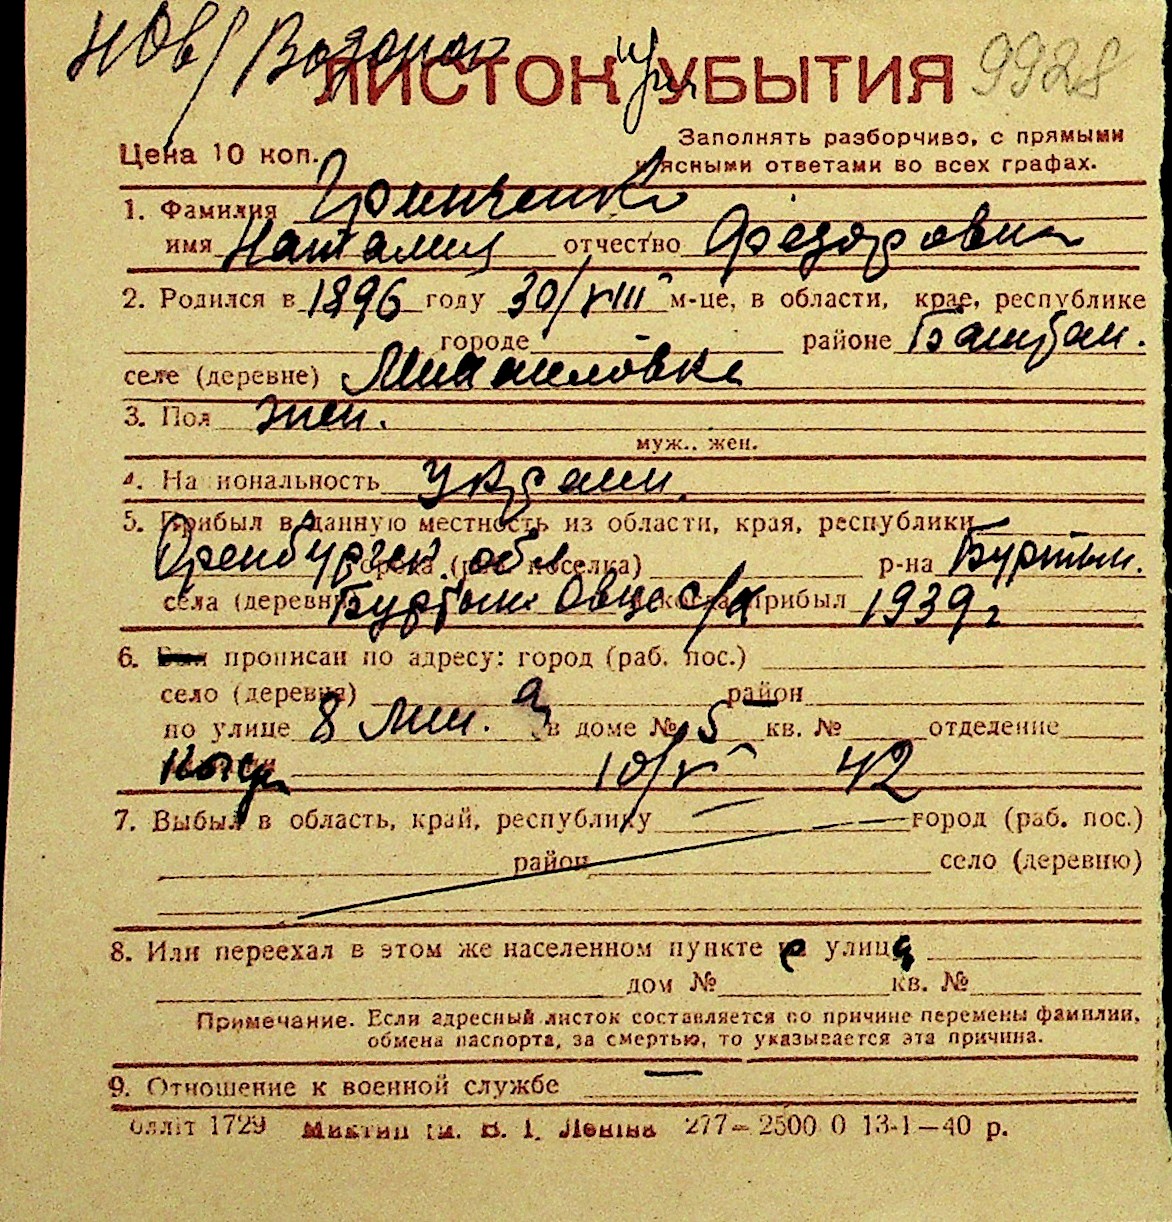 Нов/Водопой
ЛИСТОК УБЫТИЯ 9928
Цена 10 коп.
Заполнять разборчиво, с прямыми
и ясными ответами во всех графах.
1. Фамилия Гринченко
имя Наталия отчество Федоровна
2. Родился в 1896 году 30/VIII м-це, в области, крае, республике
городе районе Башран.
селе (деревне) Михайловка
3. Пол жен.
муж., жен.
4. Национальность Украин.
5. Прибыл в данную местность из области, края, республики
Оренбургск. обл города (раб. поселка) р-на Буртин.
села (деревни) Буртин Овцес/х и когда прибыл 1939 г
6. Был прописан по адресу: город (раб. пос.)
село (деревня) район
по улице 8 Лин. а в доме № 5 кв. № отделение
10/V 42
7. Выбыл в область, край, республику город (раб. пос.)
район село (деревню)
8. Или переехал в этом же населенном пункте с улица
дом № кв. №
Примечание. Если адресный листок составляется по причине перемены фамилии,
обмена паспорта, за смертью, то указывается эта причина.
9. Отношение к военной службе —
блліт 1729 Миктип ім. В. І. Леніна 277—2500 0 13-1—40 р.